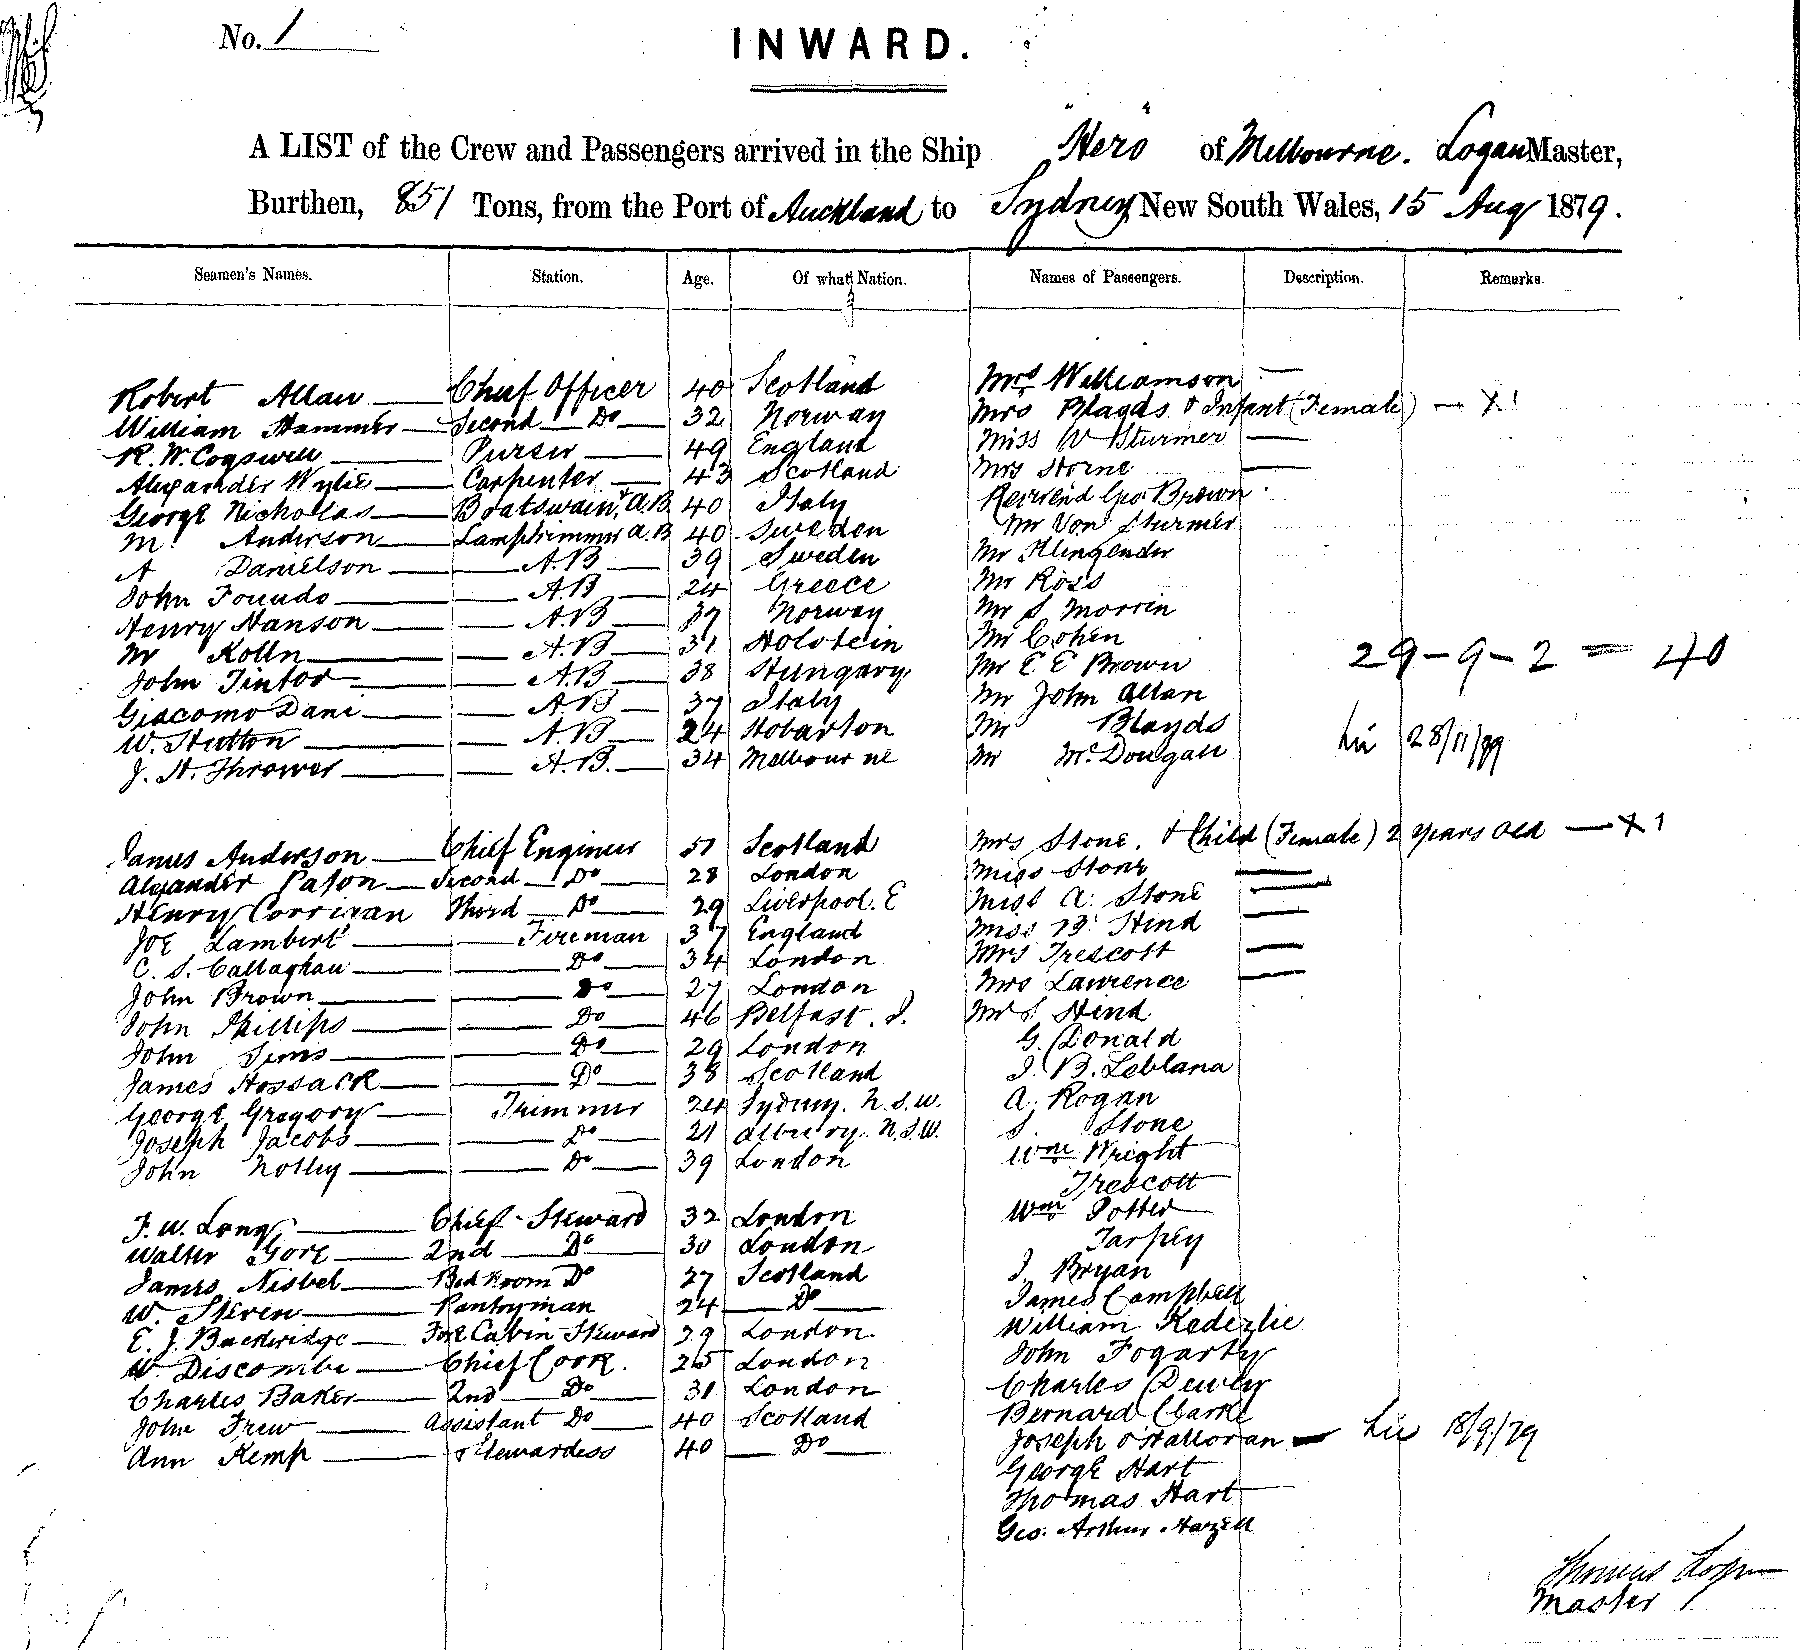 No. 1
INWARD.
A LIST of the Crew and Passengers arrived in the Ship "Hero" of Melbourne. Logan Master,
Burthen, 851 Tons, from the Port of Auckland to Sydney New South Wales, 15 Aug 1879.
Seamen's Names. Station. Age. Of what Nation. Names of Passengers. Description. Remarks.
Robert Allan Chief Officer 40 Scotland Mrs Williamson
William Hammer Second Do 32 Norway Mrs Blayds & Infant (Female) — X 1
R. W. Cogswell Purser 49 England Miss W Sturmer
Alexander Wylie Carpenter 43 Scotland Mrs Horne
George Nicholas Boatswain & A.B 40 Italy Reverend Geo. Brown
M. Anderson Lamptrimmer A.B 40 Sweden Mr Von Sturmer
A Danielson A.B 39 Sweden Mr Klingender
John Foundo A.B 24 Greece Mr Ross
Henry Hanson A.B 37 Norway Mr S Morrin
Mr Kolln A.B 31 Holstein Mr Cohen
John Tintor A.B 38 Hungary Mr E E Brown 29 - 9 - 2 = 40
Giacomo Dani A.B 37 Italy Mr John Allan
W. Hutton A.B 24 Hobarton Mr Blayds 28/11/89
J. H. Thrower A.B. 34 Melbourne Mr McDougall
James Anderson Chief Engineer 51 Scotland Mrs Stone. & Child (Female) 2 years old — X 1
Alexander Paton Second Do 28 London Miss Stone
Henry Corrigan Third Do 29 Liverpool. E Miss A. Stone
Joe Lambert Fireman 37 England Miss B. Hind
C. S. Callaghan Do 34 London Mrs Trescott
John Brown Do 27 London Mrs Lawrence
John Phillips Do 46 Belfast. I. Mr S Hind
John Sims Do 29 London G. Donald
James Hossack Do 38 Scotland J. B. Leblana
George Gregory Trimmer 24 Sydney. N.S.W. A. Rogan
Joseph Jacobs Do 21 Albury. N.S.W. S. Stone
John Notley Do 39 London Wm Wright
Trescott
F. W. Long Chief Steward 32 London Wm Potter
Walter Gore 2nd Do 30 London Tarpey
James Nisbet Bed Room Do 27 Scotland J Bryan
W. Steven Pantryman 24 Do James Campbell
E. J. Buckeridge Fore Cabin Steward 29 London William Kederlie
W. Discombe Chief Cook. 25 London John Fogarty
Charles Baker 2nd Do 31 London Charles Dewley
John Frew Assistant Do 40 Scotland Bernard Clarke
Ann Kemp Stewardess 40 Do Joseph O'Halloran 18/9/79
George Hart
Thomas Hart
Geo. Arthur Hazell
Thomas Logan
Master